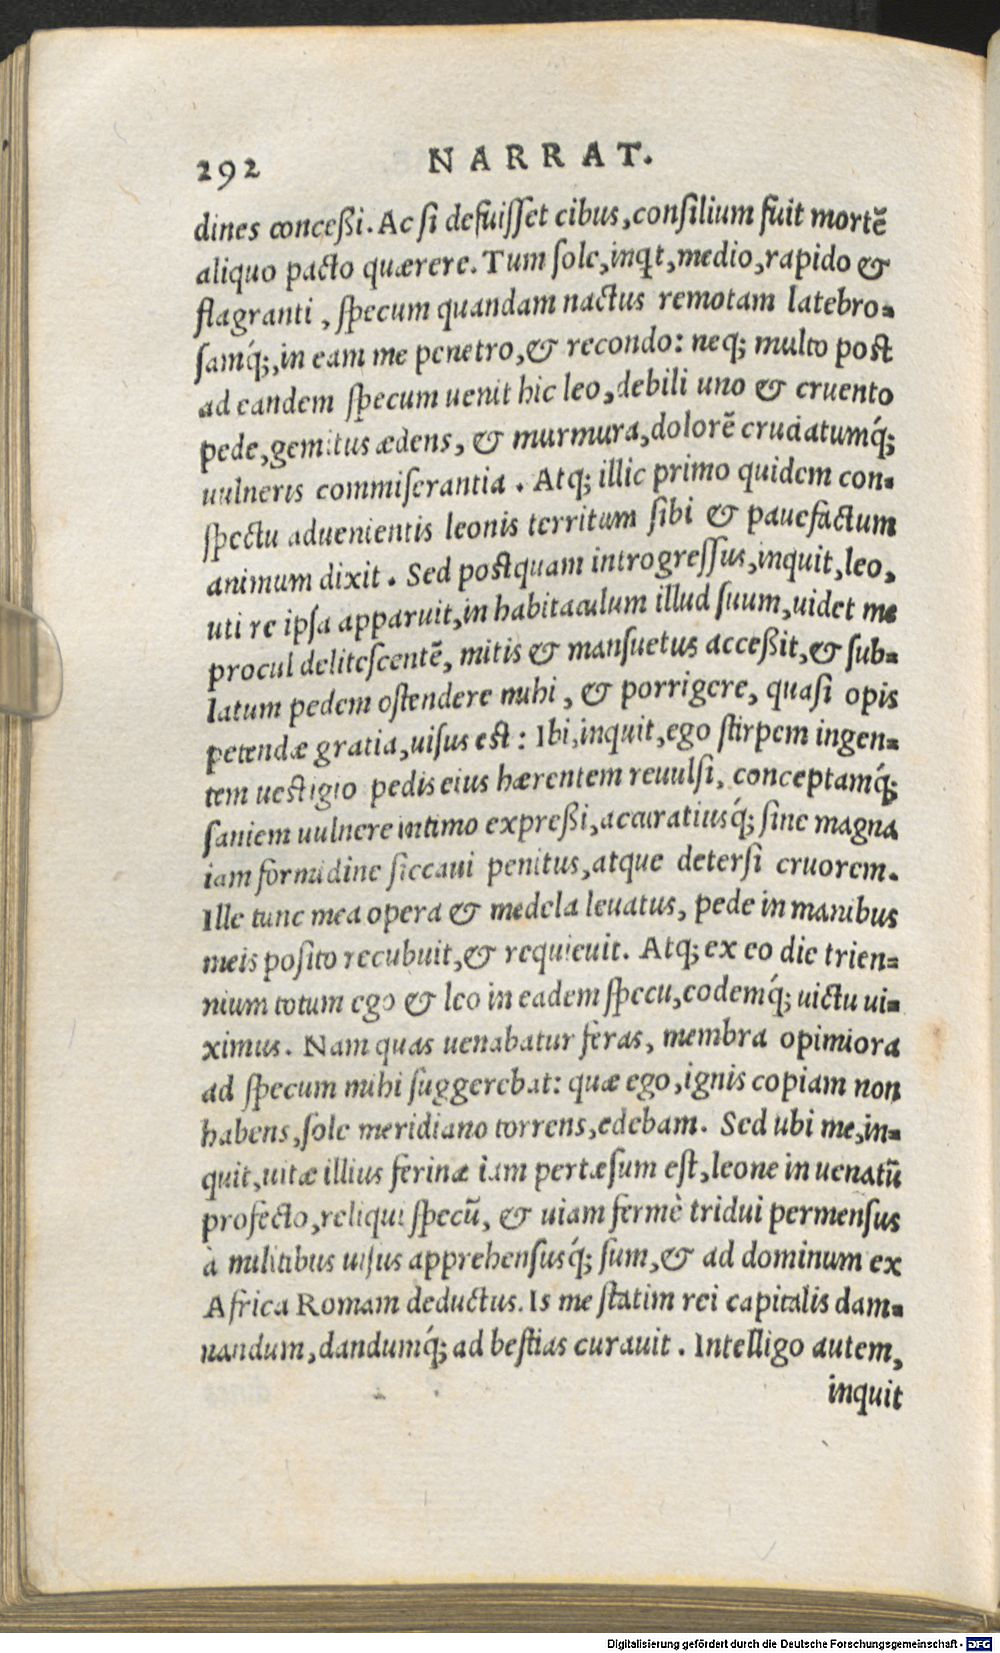 292 NARRAT.
dines conceßi. Ac ſi defuiſſet cibus, conſilium fuit mortẽ
aliquo pacto quærere. Tum ſole, inqt, medio, rapido &
flagranti, ſpecum quandam nactus remotam latebro-
ſamq́;, in eam me penetro, & recondo: neq; multo post
ad eandem ſpecum uenit hic leo, debili uno & cruento
pede, gemitus ædens, & murmura, dolorẽ cruciatumq́;
uulneris commiſerantia. Atq; illic primo quidem con-
ſpectu aduenientis leonis territum ſibi & pauefactum
animum dixit. Sed postquam introgreſſus, inquit, leo,
uti re ipſa apparuit, in habitaculum illud ſuum, uidet me
procul deliteſcentẽ, mitis & manſuetus acceßit, & ſub-
latum pedem oſtendere mihi, & porrigere, quaſi opis
petendæ gratia, uiſus est: Ibi, inquit, ego ſtirpem ingen-
tem uestigio pedis eius hærentem reuulſi, conceptamq́;
ſaniem uulnere intimo expreßi, accuratiusq́; ſine magna
iam formidine ſiccaui penitus, atque deterſi cruorem.
Ille tunc mea opera & medela leuatus, pede in manibus
meis poſito recubuit, & requieuit. Atq; ex eo die trien-
nium totum ego & leo in eadem ſpecu, eodemq́; uictu ui-
ximus. Nam quas uenabatur feras, membra opimiora
ad ſpecum mihi ſuggerebat: quæ ego, ignis copiam non
habens, ſole meridiano torrens, edebam. Sed ubi me, in-
quit, uitæ illius ferinæ iam pertæſum eſt, leone in uenatũ
profecto, reliqui ſpecũ, & uiam fermè tridui permenſus
à militibus uiſus apprehenſusq́; ſum, & ad dominum ex
Africa Romam deductus. Is me ſtatim rei capitalis dam-
nandum, dandumq́; ad beſtias curauit. Intelligo autem,
inquit
Digitalisierung gefördert durch die Deutsche Forschungsgemeinschaft - DFG